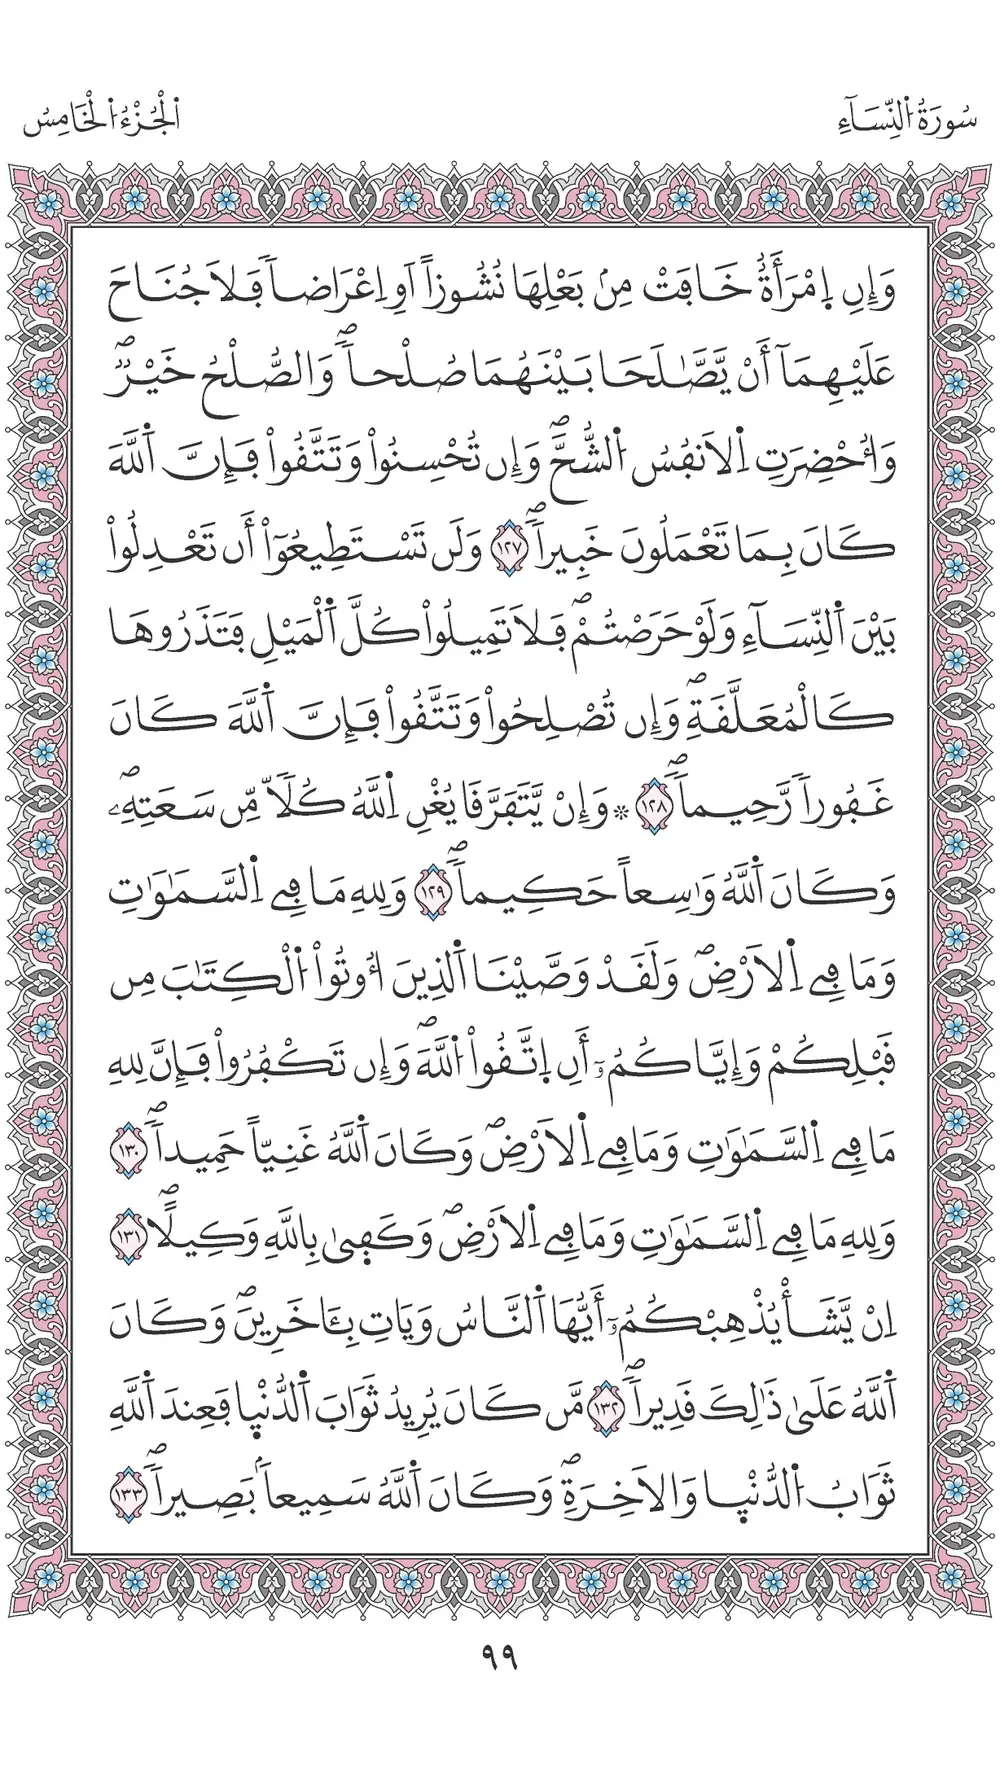 سُورَةُ اُ۬لنِّسَآءِ
اَ۬لْجُزْءُ اُ۬لْخَامِسُ
وَإِنِ اِ۪مْرَأَةٌ خَافَتْ مِنۢ بَعْلِهَا نُشُوزاً اَوِ اِعْرَاضاٗ فَلَا جُنَاحَ
عَلَيْهِمَآ أَنْ يَّصَّٰلَحَا بَيْنَهُمَا صُلْحاٗۖ وَالصُّلْحُ خَيْرٞۖ
وَأُحْضِرَتِ اِ۬لَانفُسُ اُ۬لشُّحَّۖ وَإِن تُحْسِنُواْ وَتَتَّقُواْ فَإِنَّ اَ۬للَّهَ
كَانَ بِمَا تَعْمَلُونَ خَبِيراٗۖ ١٢٧ وَلَن تَسْتَطِيعُوٓاْ أَن تَعْدِلُواْ
بَيْنَ اَ۬لنِّسَآءِ وَلَوْ حَرَصْتُمْۖ فَلَا تَمِيلُواْ كُلَّ اَ۬لْمَيْلِ فَتَذَرُوهَا
كَالْمُعَلَّقَةِۖ وَإِن تُصْلِحُواْ وَتَتَّقُواْ فَإِنَّ اَ۬للَّهَ كَانَ
غَفُوراٗ رَّحِيماٗۖ ١٢٨ * وَإِنْ يَّتَفَرَّقَا يُغْنِ اِ۬للَّهُ كُلّاٗ مِّن سَعَتِهِۦۖ
وَكَانَ اَ۬للَّهُ وَٰسِعاً حَكِيماٗۖ ١٢٩ وَلِلهِ مَا فِے اِ۬لسَّمَٰوَٰتِ
وَمَا فِے اِ۬لَارْضِۖ وَلَقَدْ وَصَّيْنَا اَ۬لذِينَ أُوتُواْ اُ۬لْكِتَٰبَ مِن
قَبْلِكُمْ وَإِيَّاكُمُۥٓ أَنِ اِ۪تَّقُواْ اُ۬للَّهَۖ وَإِن تَكْفُرُواْ فَإِنَّ لِلهِ
مَا فِے اِ۬لسَّمَٰوَٰتِ وَمَا فِے اِ۬لَارْضِۖ وَكَانَ اَ۬للَّهُ غَنِيّاً حَمِيداٗۖ ١٣٠
وَلِلهِ مَا فِے اِ۬لسَّمَٰوَٰتِ وَمَا فِے اِ۬لَارْضِۖ وَكَف۪ىٰ بِاللَّهِ وَكِيلاًۖ ١٣١
اِنْ يَّشَأْ يُذْهِبْكُمُۥٓ أَيُّهَا اَ۬لنَّاسُ وَيَاتِ بِـَٔاخَرِينَۖ وَكَانَ
اَ۬للَّهُ عَلَىٰ ذَٰلِكَ قَدِيراٗۖ ١٣٢ مَّن كَانَ يُرِيدُ ثَوَابَ اَ۬لدُّنْي۪ا فَعِندَ اَ۬للَّهِ
ثَوَابُ اُ۬لدُّنْي۪ا وَالَاخِرَةِۖ وَكَانَ اَ۬للَّهُ سَمِيعاَۢ بَصِيراٗۖ ١٣٣
٩٩